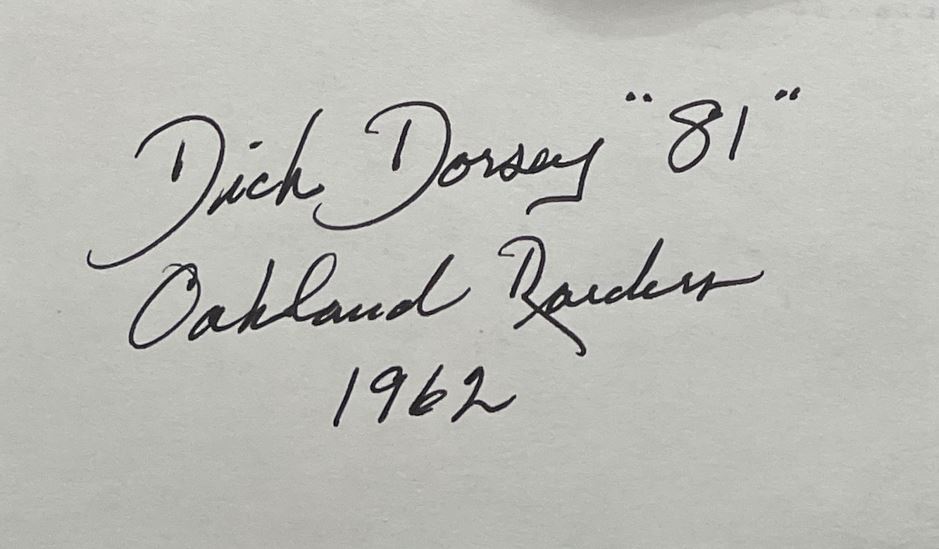 Dick Dorsey "81"
Oakland Raiders
1962